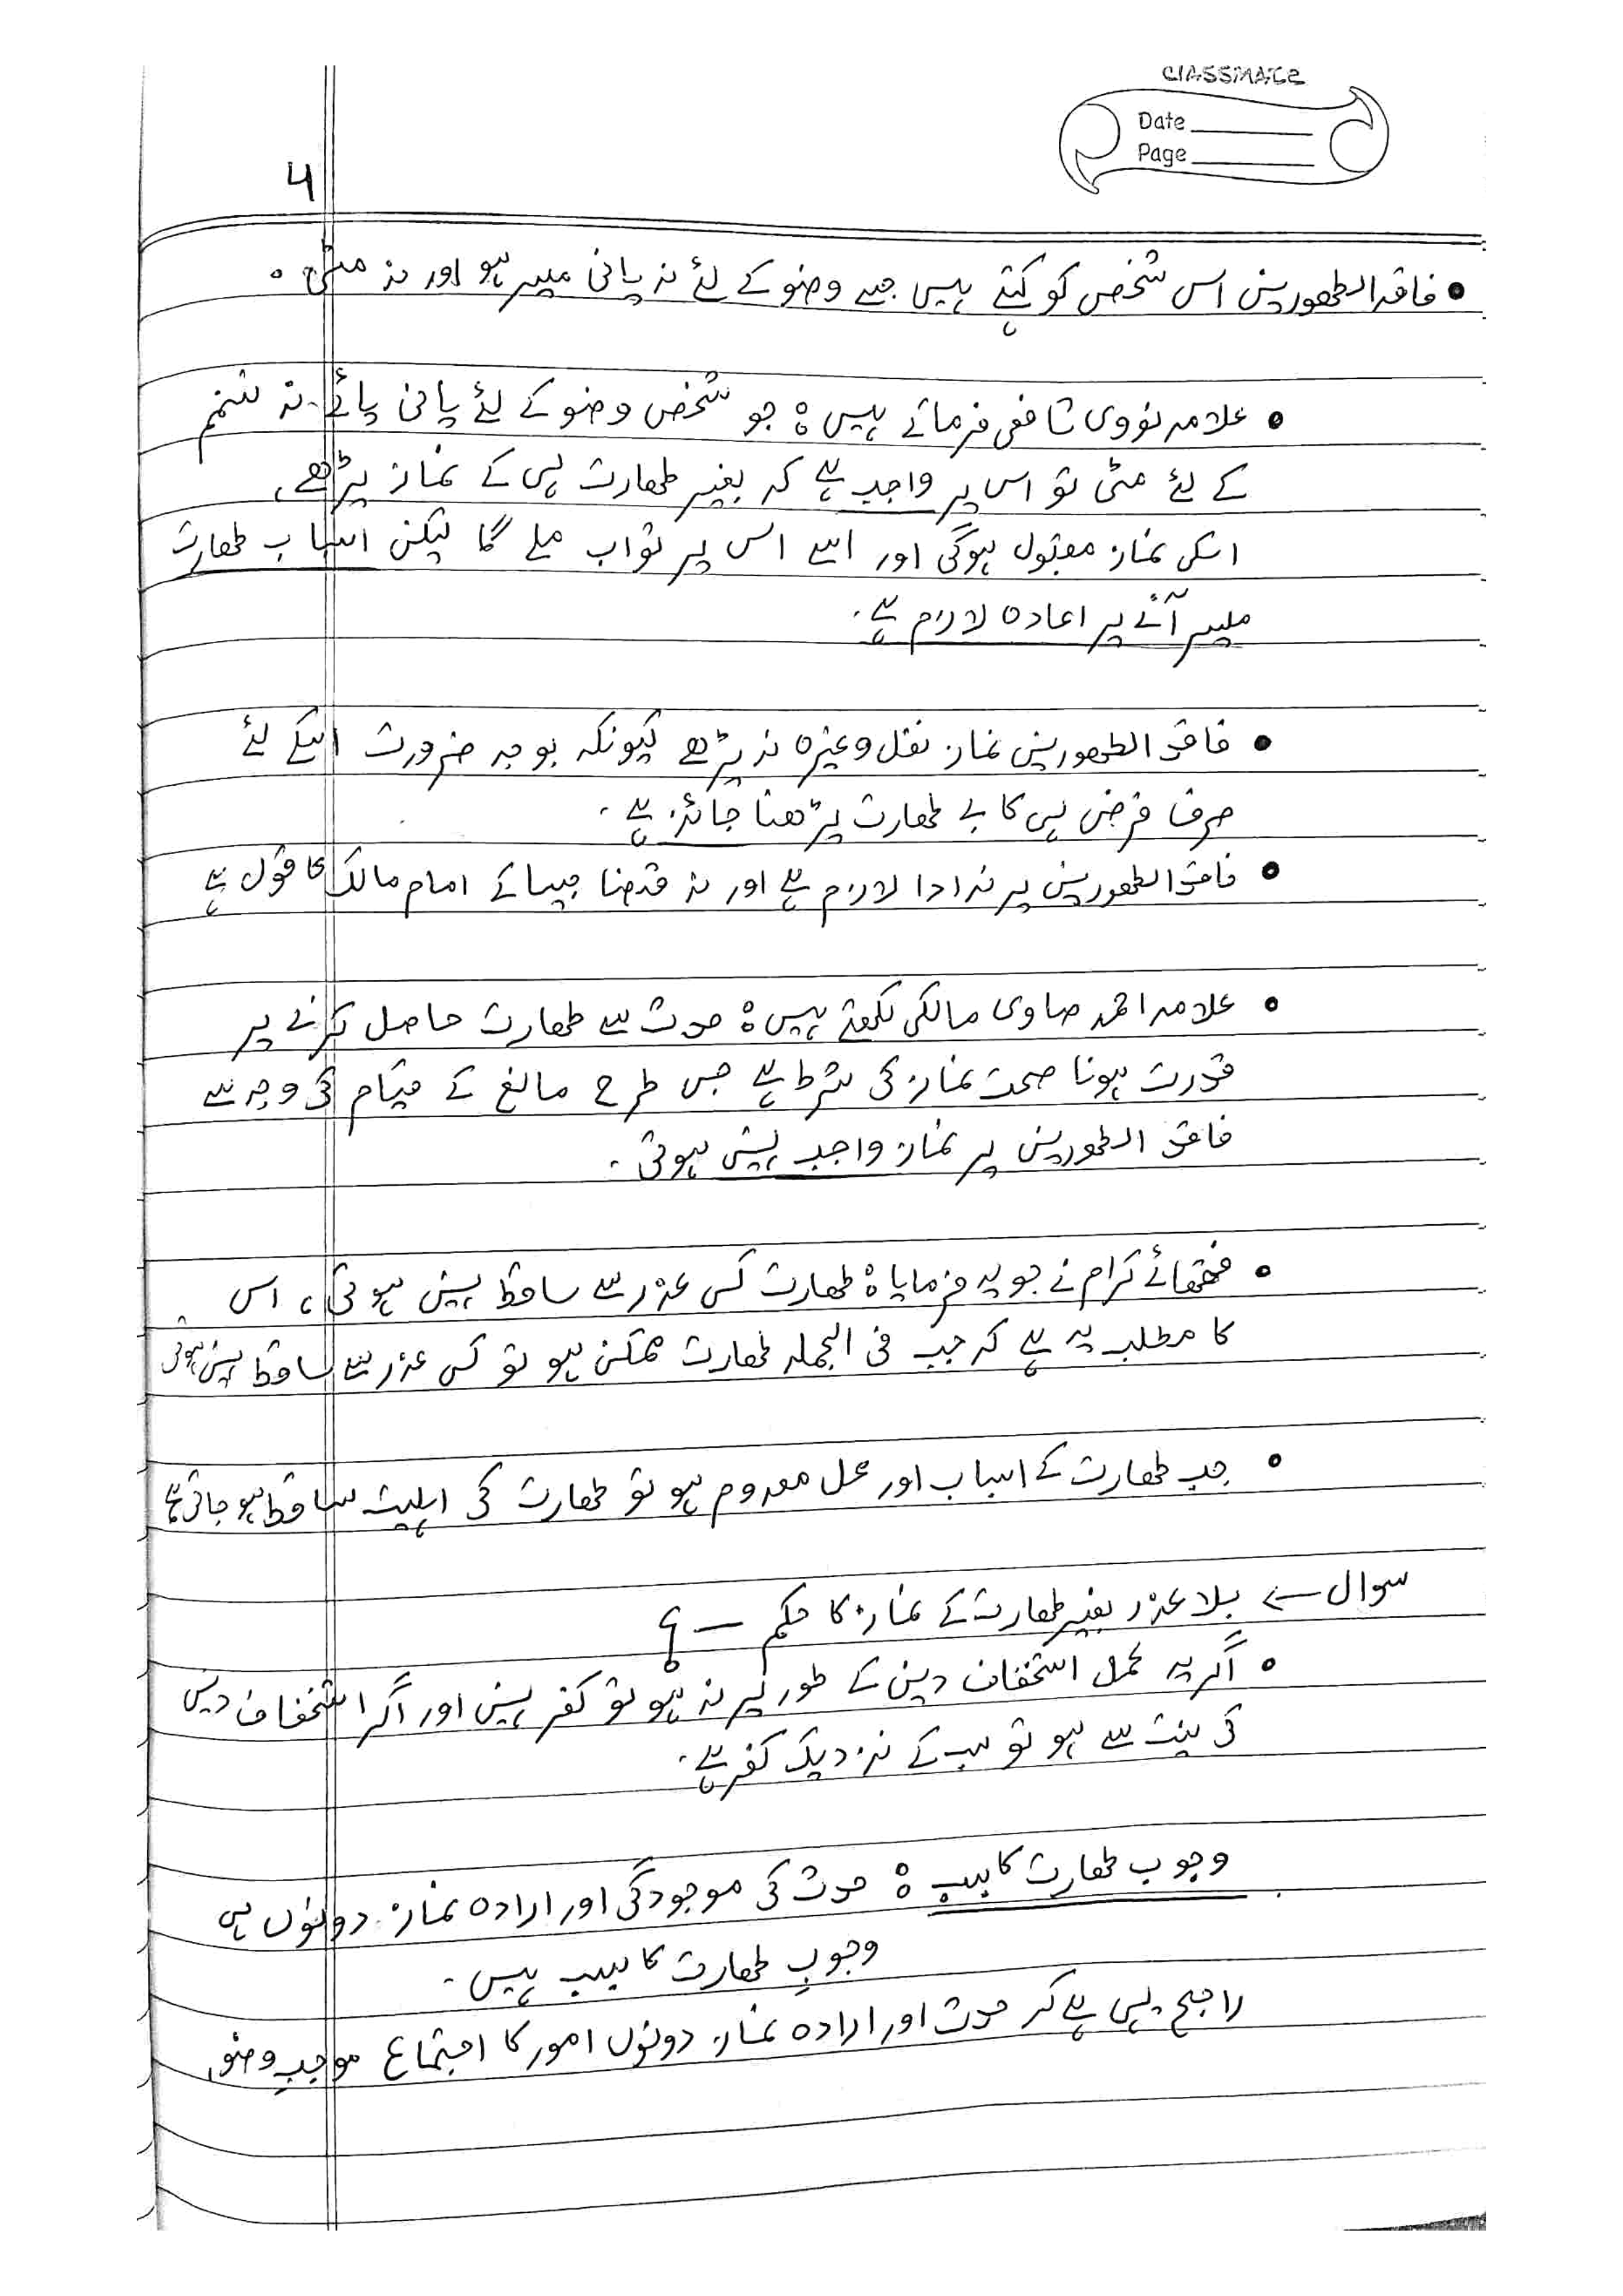 CLASSMATE
Date
Page
4
• فاقد الطھورین اس شخص کو کہتے ہیں جسے وضو کے لئے نہ پانی میسر ہو اور نہ مٹی۔
• علامہ نووی شافعی فرماتے ہیں: جو شخص وضو کے لئے پانی پائے نہ تیمم
کے لئے مٹی تو اس پر واجب ہے کہ بغیر طھارت ہی کے نماز پڑھے،
اسکی نماز مقبول ہوگی اور اسے اس پر ثواب ملے گا لیکن اسباب طھارت
میسر آنے پر اعادہ لازم ہے۔
• فاقد الطھورین نماز نفل وغیرہ نہ پڑھے کیونکہ بوجہ ضرورت اسکے لئے
صرف فرض ہی کا بے طھارت پڑھنا جائز ہے۔
• فاقد الطھورین پر نہ ادا لازم ہے اور نہ قضا جیسا کے امام مالک کا قول ہے
• علامہ احمد صاوی مالکی لکھتے ہیں: حدث سے طھارت حاصل کرنے پر
قدرت ہونا صحت نماز کی شرط ہے جس طرح مانع کے قیام کی وجہ سے
فاقد الطھورین پر نماز واجب نہیں ہوتی۔
• فقھائے کرام نے جو یہ فرمایا: طھارت کسی عذر سے ساقط نہیں ہوتی، اس
کا مطلب یہ ہے کہ جب فی الجملہ طھارت ممکن ہو تو کسی عذر سے ساقط نہیں ہوتی
• جب طھارت کے اسباب اور محل معدوم ہو تو طھارت کی اہلیت ساقط ہو جاتی ہے
سوال -> بلا عذر بغیر طھارت کے نماز کا حکم — ؟
• اگر یہ عمل استخفاف دین کے طور پر نہ ہو تو کفر نہیں اور اگر استخفاف دین
کی نیت سے ہو تو سب کے نزدیک کفر ہے۔
وجوب طھارت کا سبب: حدث کی موجودگی اور ارادہ نماز۔ دونوں ہی
وجوبِ طھارت کا سبب ہیں۔
راجح یہی ہے کہ حدث اور ارادہ نماز دونوں امور کا اجتماع موجبِ وضو